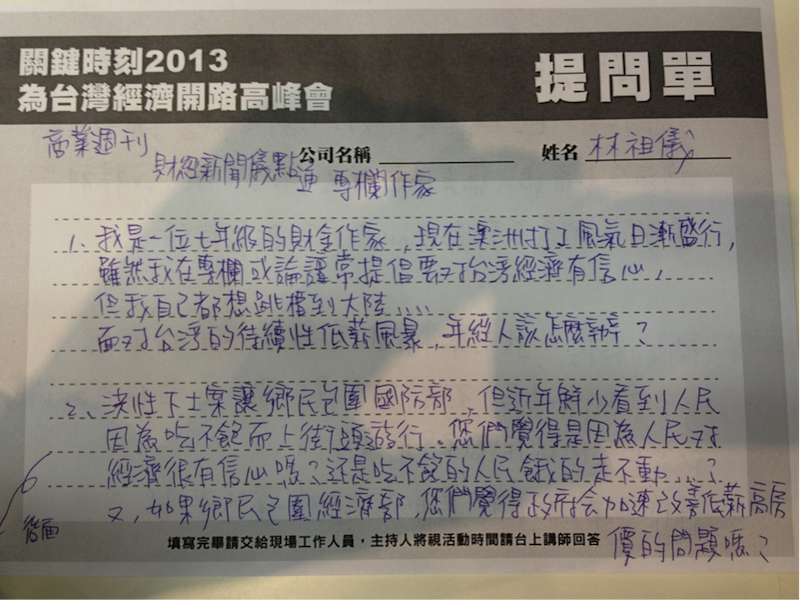 關鍵時刻2013
為台灣經濟開路高峰會
提問單
商業週刊
公司名稱
姓名 林祖儀
財經新聞儀點通 專欄作家
1、我是一位七年級的財金作家,現在澳洲打工風氣日漸盛行,
雖然我在專欄或論壇常提倡要對台湾經濟有信心,
但我自己都想跳槽到大陸....
面对台湾的持續性低薪風暴,年經人該怎麼辦?
2、洪性下士案讓鄉民包圍國防部,但近年鮮少看到人民
因為吃不飽而上街頭遊行。您們覺得是因為人民对
經濟很有信心嗎?還是吃不飽的人民餓的走不動...?
又,如果鄉民包圍經濟部,您們覺得政府會加速改善低薪高房
價的問題嗎?
後面
填寫完畢請交給現場工作人員,主持人將視活動時間請台上講師回答